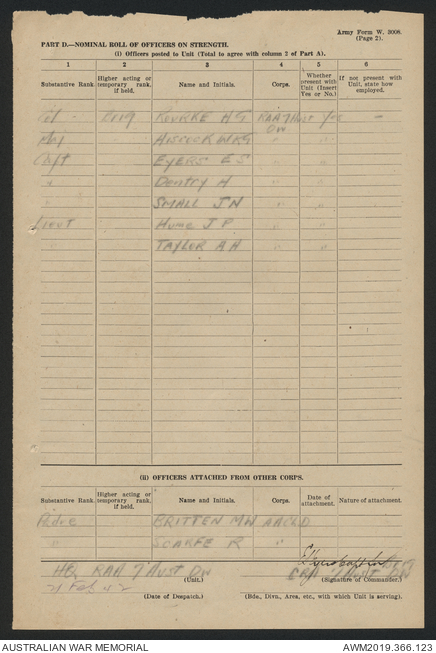 Army Form W. 3008.
(Page 2).
PART D.—NOMINAL ROLL OF OFFICERS ON STRENGTH.
(i) Officers posted to Unit (Total to agree with column 2 of Part A).
1 2 3 4 5 6
Substantive Rank. Higher acting or temporary rank, if held. Name and Initials. Corps. Whether present with Unit (Insert Yes or No.) If not present with Unit, state how employed.
Col Brig ROURKE H G RAA 7 Aust Div Yes -
Maj " HISCOCK " "
Capt " EYERS E S " "
" " Dentry H " "
" " SMALL J N " "
Lieut " Hume J P " "
" TAYLOR A A " "
(ii) OFFICERS ATTACHED FROM OTHER CORPS.
Substantive Rank. Higher acting or temporary rank, if held. Name and Initials. Corps. Date of attachment. Nature of attachment.
Padre BRITTEN M W AACLD
" SCARFE R "
HQ RAA 7 Aust Div
(Unit.) (Signature of Commander.)
21 Feb 42
(Date of Despatch.) (Bde., Divn., Area, etc., with which Unit is serving).
AUSTRALIAN WAR MEMORIAL AWM2019.366.123